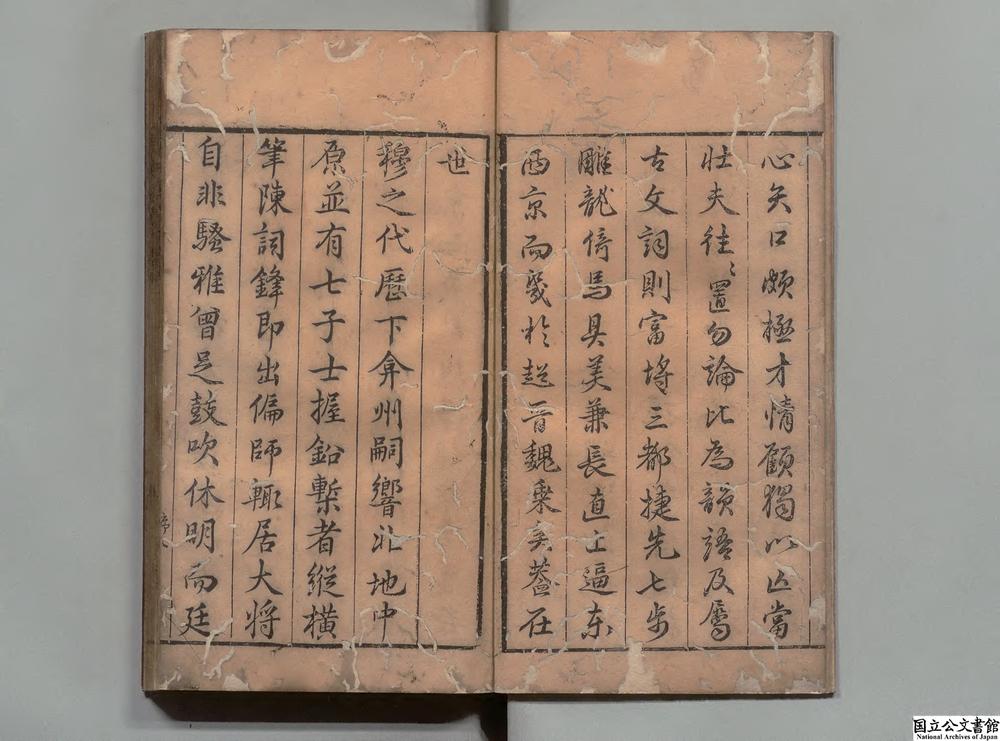 心矢口頗極才情顧獨以止當
壯夫往〻置勿論比為韻語及屬
古文詞則富埒三都捷先七步
雕龍倚馬具美兼長直上逼東
西京而幾於超晉魏乗矣蓋在
世
穆之代歷下弇州嗣響北地中
原並有七子士握鉛槧者縱橫
筆陳詞鋒即出偏師輙居大將
自非騷雅曾足鼓吹休明而廷
国立公文書館
National Archives of Japan